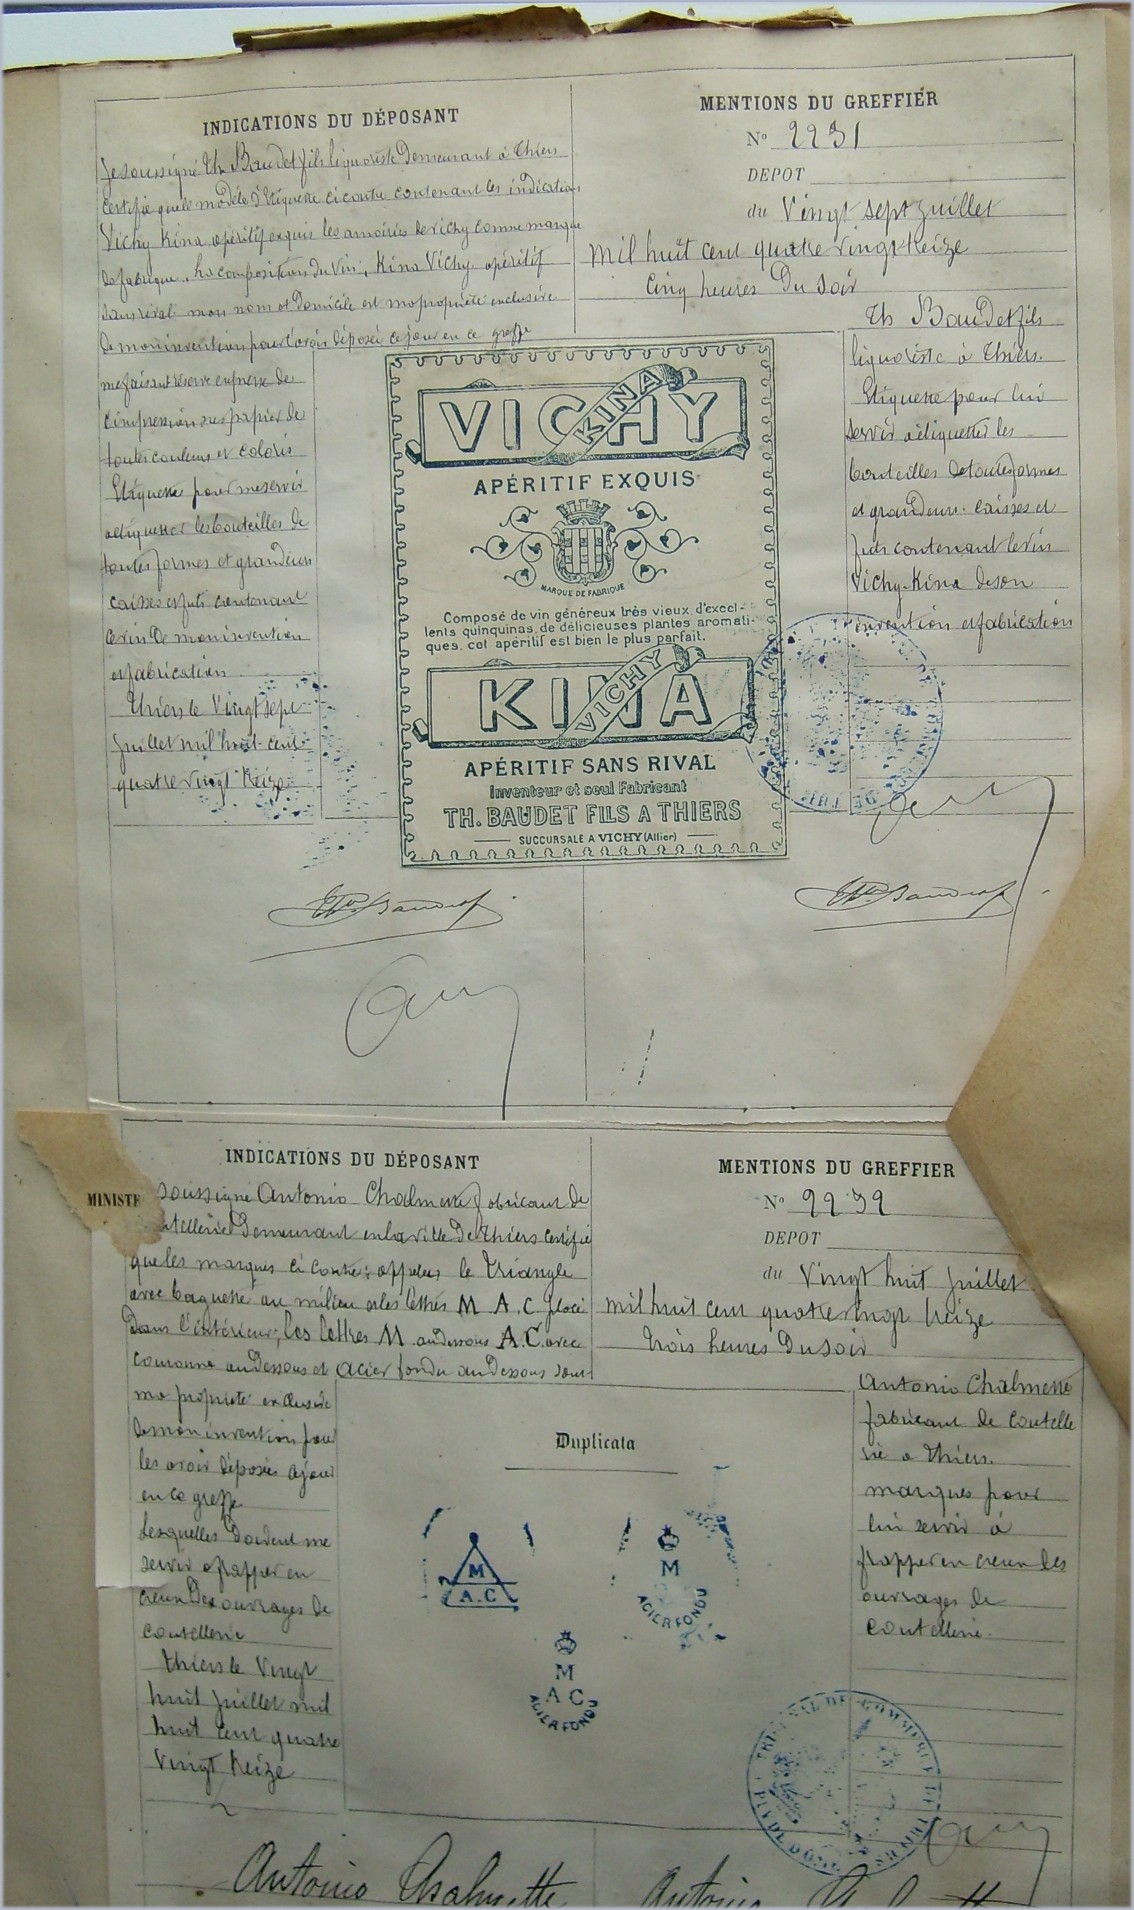 INDICATIONS DU DÉPOSANT
Je soussigné Th Baudet fils liquoriste Demeurant à Thiers
certifie que le modèle d'Etiquette ci contre contenant les indications
Vichy Kina, apéritif exquis les armoiries de vichy comme marque
de fabrique. La composition du vin, Kina Vichy apéritif
sans rival mon nom et Domicile est ma propriété exclusive
De mon invention pour l'avoir déposée ce jour en ce greffe
me faisant réserve expresse de
l'impression sur papier de
toutes couleurs et coloris
Etiquettes pour me servir
a etiquetter les bouteilles de
toutes formes et grandeurs
caisses et futs contenant
ce vin De mon invention
et fabrication
Thiers le Vingt sept
Juillet mil huit-cent
quatre vingt treize
MENTIONS DU GREFFIER
No 2231
DEPOT
du Vingt sept Juillet
mil huit cent quatre vingt treize
Cinq heures Du soir
Th Baudet fils
liquoriste à Thiers.
Etiquette pour lui
servir a étiquetter les
bouteilles de toutes formes
et grandeur. Caisses et
futs contenant le vin
Vichy-Kina de son
invention et fabrication
VICHY
KINA
APÉRITIF EXQUIS
MARQUE DE FABRIQUE
Composé de vin généreux très vieux, d'excel-
lents quinquinas, de délicieuses plantes aromati-
ques. cet apéritif est bien le plus parfait.
KINA
VICHY
APÉRITIF SANS RIVAL
Inventeur et seul Fabricant
TH. BAUDET FILS A THIERS
SUCCURSALE A VICHY (Allier)
Th. Baudet f
Th. Baudet f
MINISTE
INDICATIONS DU DÉPOSANT
soussigné Antonio Chalmette fabricant de
utellerie Demeurant en la ville De Thiers certifie
que les marques ci contre: appelées le triangle
avec baguette au milieu et les lettres M A. C placé
Dans l'intérieur; les lettres M au dessous A.C. avec
couronne au Dessous et acier fondu au Dessous sont
ma propriété exclusive
De mon invention pour
les avoir déposées ce jour
en ce greffe
Lesquelles Doivent me
servir a frapper en
creux Des ouvrages de
coutellerie
Thiers le Vingt
huit Juillet mil
huit cent quatre
Vingt treize
MENTIONS DU GREFFIER
No 2232
DEPOT
du Vingt huit Juillet
mil huit cent quatre vingt treize
trois heures Du soir
Antonio Chalmette
fabricant de coutelle
rie a Thiers.
marques pour
lui servir à
frapper en creux les
ouvrages de
coutellerie.
Duplicata
M
A.C
M
ACIER FONDU
M
A C
ACIER FONDU
TRIBUNAL DE COMMERCE DE THIERS
PUY DE DOME
Antonio Chalmette
Antonio